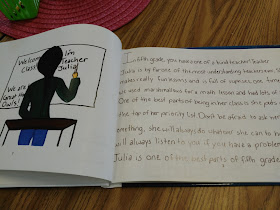 Welcome
Class
I'm
Teacher
Julia
We are
Great
Owls!
In fifth grade, you have one of a kind teacher! Teacher
Julia is by far one of the most understanding teachers ever. She
makes really fun lessons and is full of surprises, one time
we used marshmallows for a math lesson and had lots of
One of the best parts of being in her class is she puts
the top of her priority list. Don't be afraid to ask her
something, she will always do whatever she can to he
will always listen to you if you have a problem
Julia is one of the best parts of fifth grade